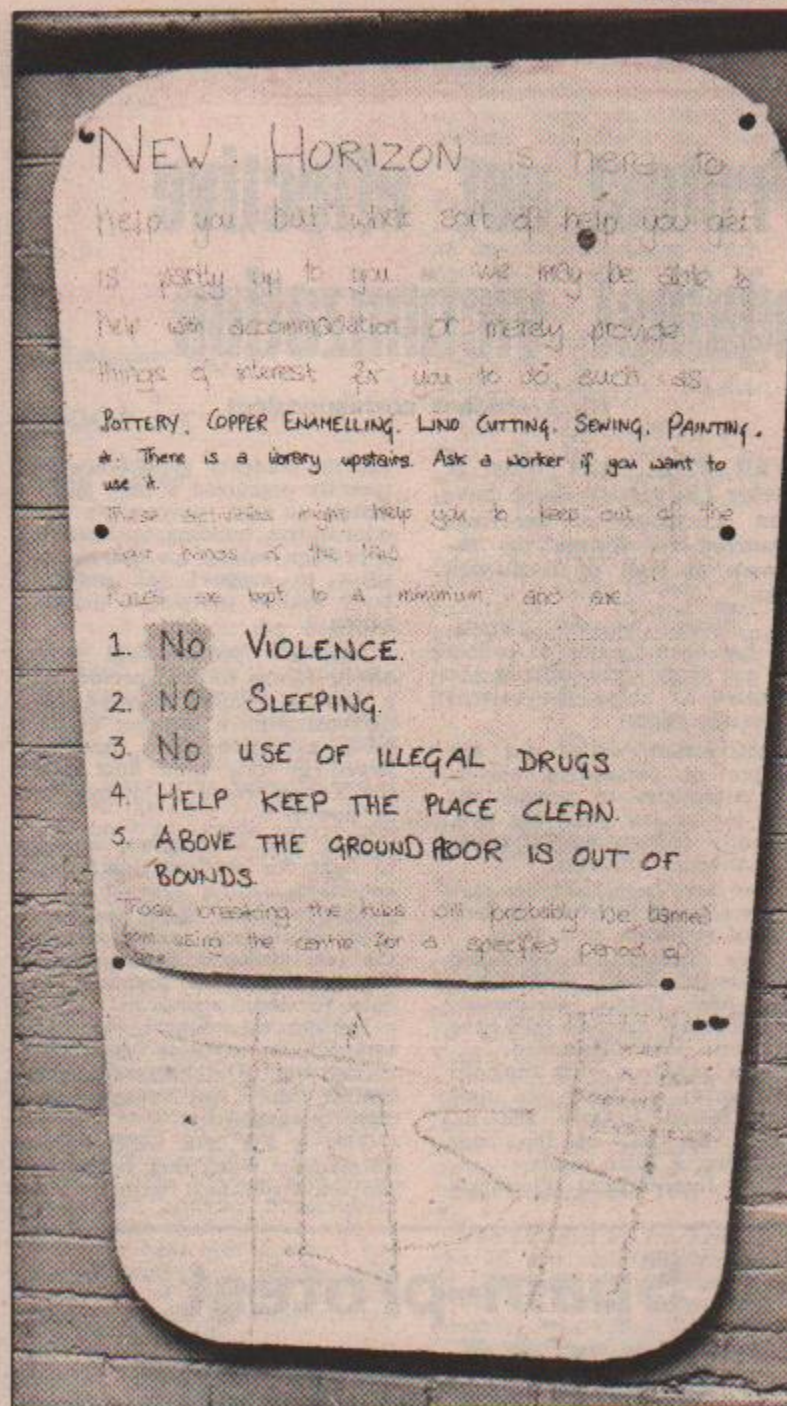 NEW. HORIZON is here to
help you but what sort of help you get
is partly up to you - we may be able to
help with accommodation or merely provide
things of interest for you to do, such as
POTTERY. COPPER ENAMELLING. LINO CUTTING. SEWING. PAINTING.
*. There is a library upstairs. Ask a worker if you want to
use it.
These activities might help you to keep out of the
hands of the law
Rules are kept to a minimum, and are
1. NO VIOLENCE.
2. NO SLEEPING.
3. NO USE OF ILLEGAL DRUGS
4. HELP KEEP THE PLACE CLEAN.
5. ABOVE THE GROUND FLOOR IS OUT OF
BOUNDS.
Those breaking the rules will probably be banned
from using the centre for a specified period of
time